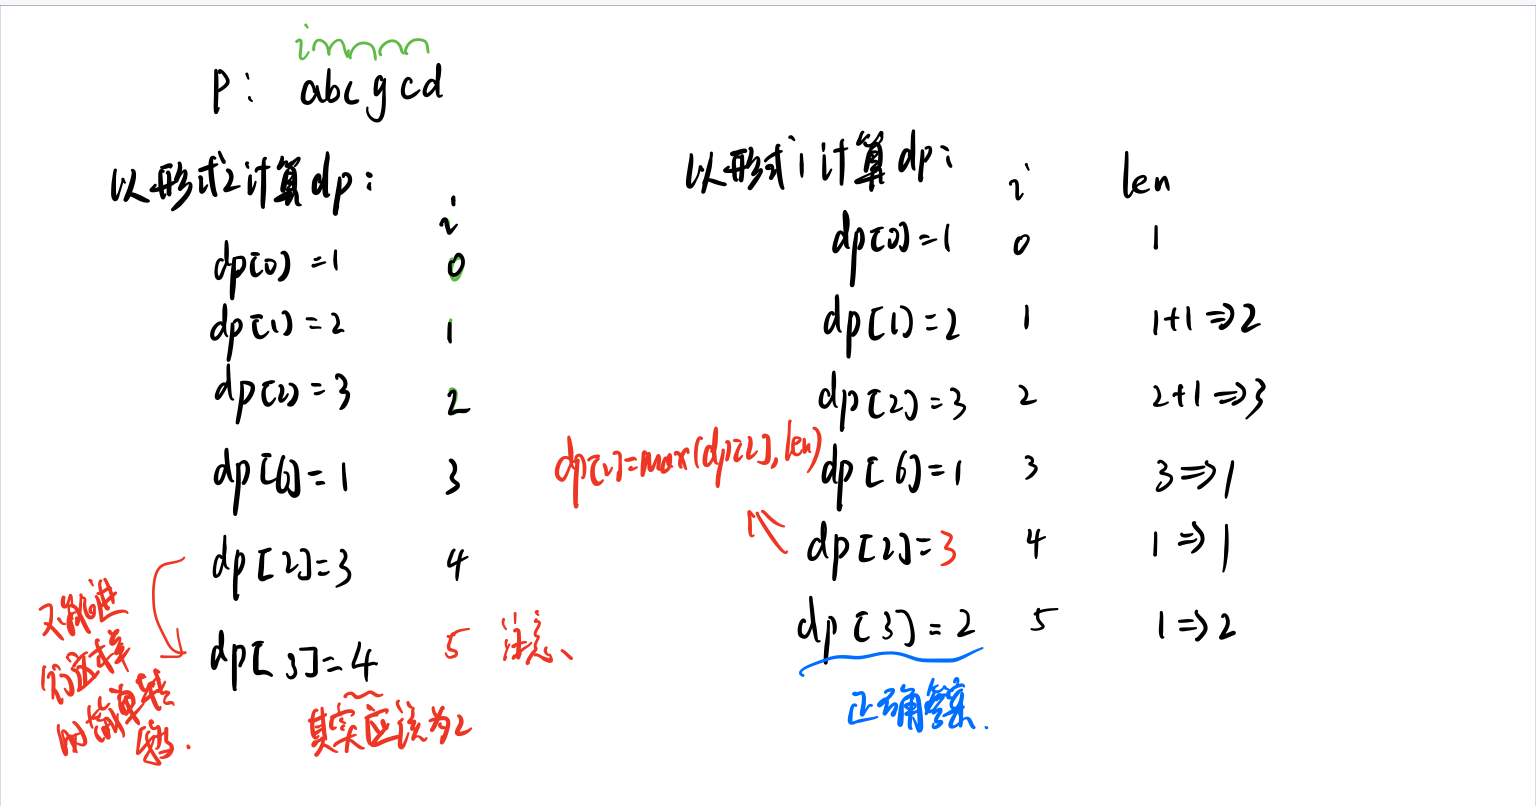 P: abcgcd
以形式2计算dp:
i
dp[0]=1 0
dp[1]=2 1
dp[2]=3 2
dp[6]=1 3
dp[2]=3 4
dp[3]=4 5 注意、
不能进
行这样
的简单转
移.
其实应该为2
以形式1计算dp: i len
dp[0]=1 0 1
dp[1]=2 1 1+1⇒2
dp[2]=3 2 2+1⇒3
dp[6]=1 3 3⇒1
dp[2]=max(dp[2],len)
dp[2]=3 4 1⇒1
dp[3]=2 5 1⇒2
正确答案.